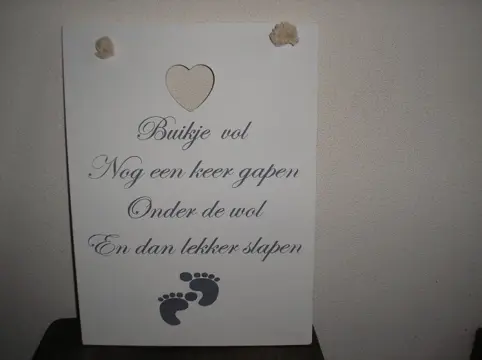 Buikje vol
Nog een keer gapen
Onder de wol
En dan lekker slapen